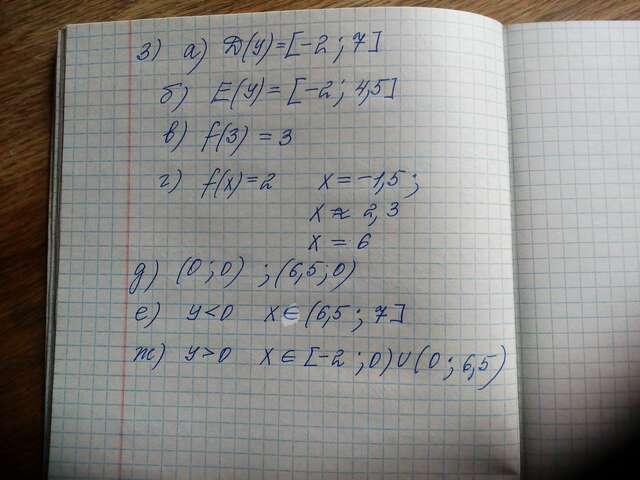 3) а) D(y)=[-2; 7]
б) E(y)= [-2; 4,5]
в) f(3) = 3
г) f(x)=2 x=-1,5;
x≈ 2,3
x = 6
д) (0;0) ; (6,5;0)
е) y<0 x∈(6,5; 7]
ж) y>0 x∈[-2;0)∪(0;6,5)